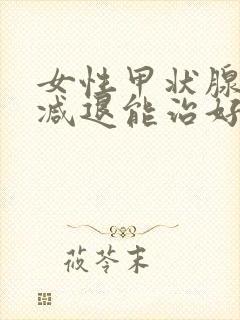 女性甲状腺
减退能治好
莜苓末